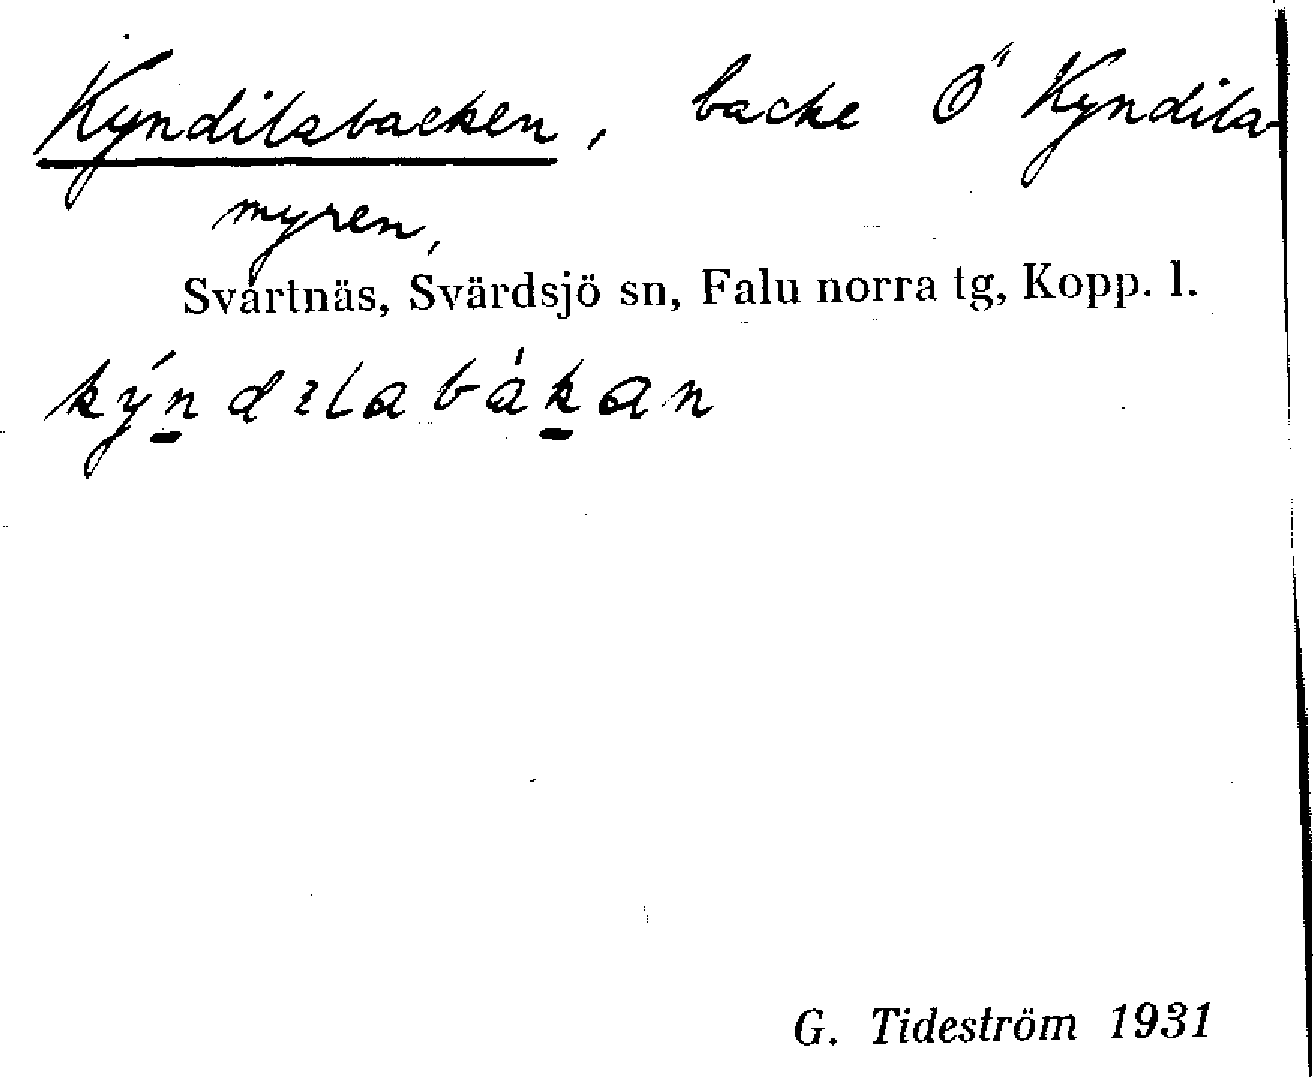 Kyndilsbacken, backe Ö Kyndils-
myren,
Svartnäs, Svärdsjö sn, Falu norra tg, Kopp. l.
G. Tideström 1931